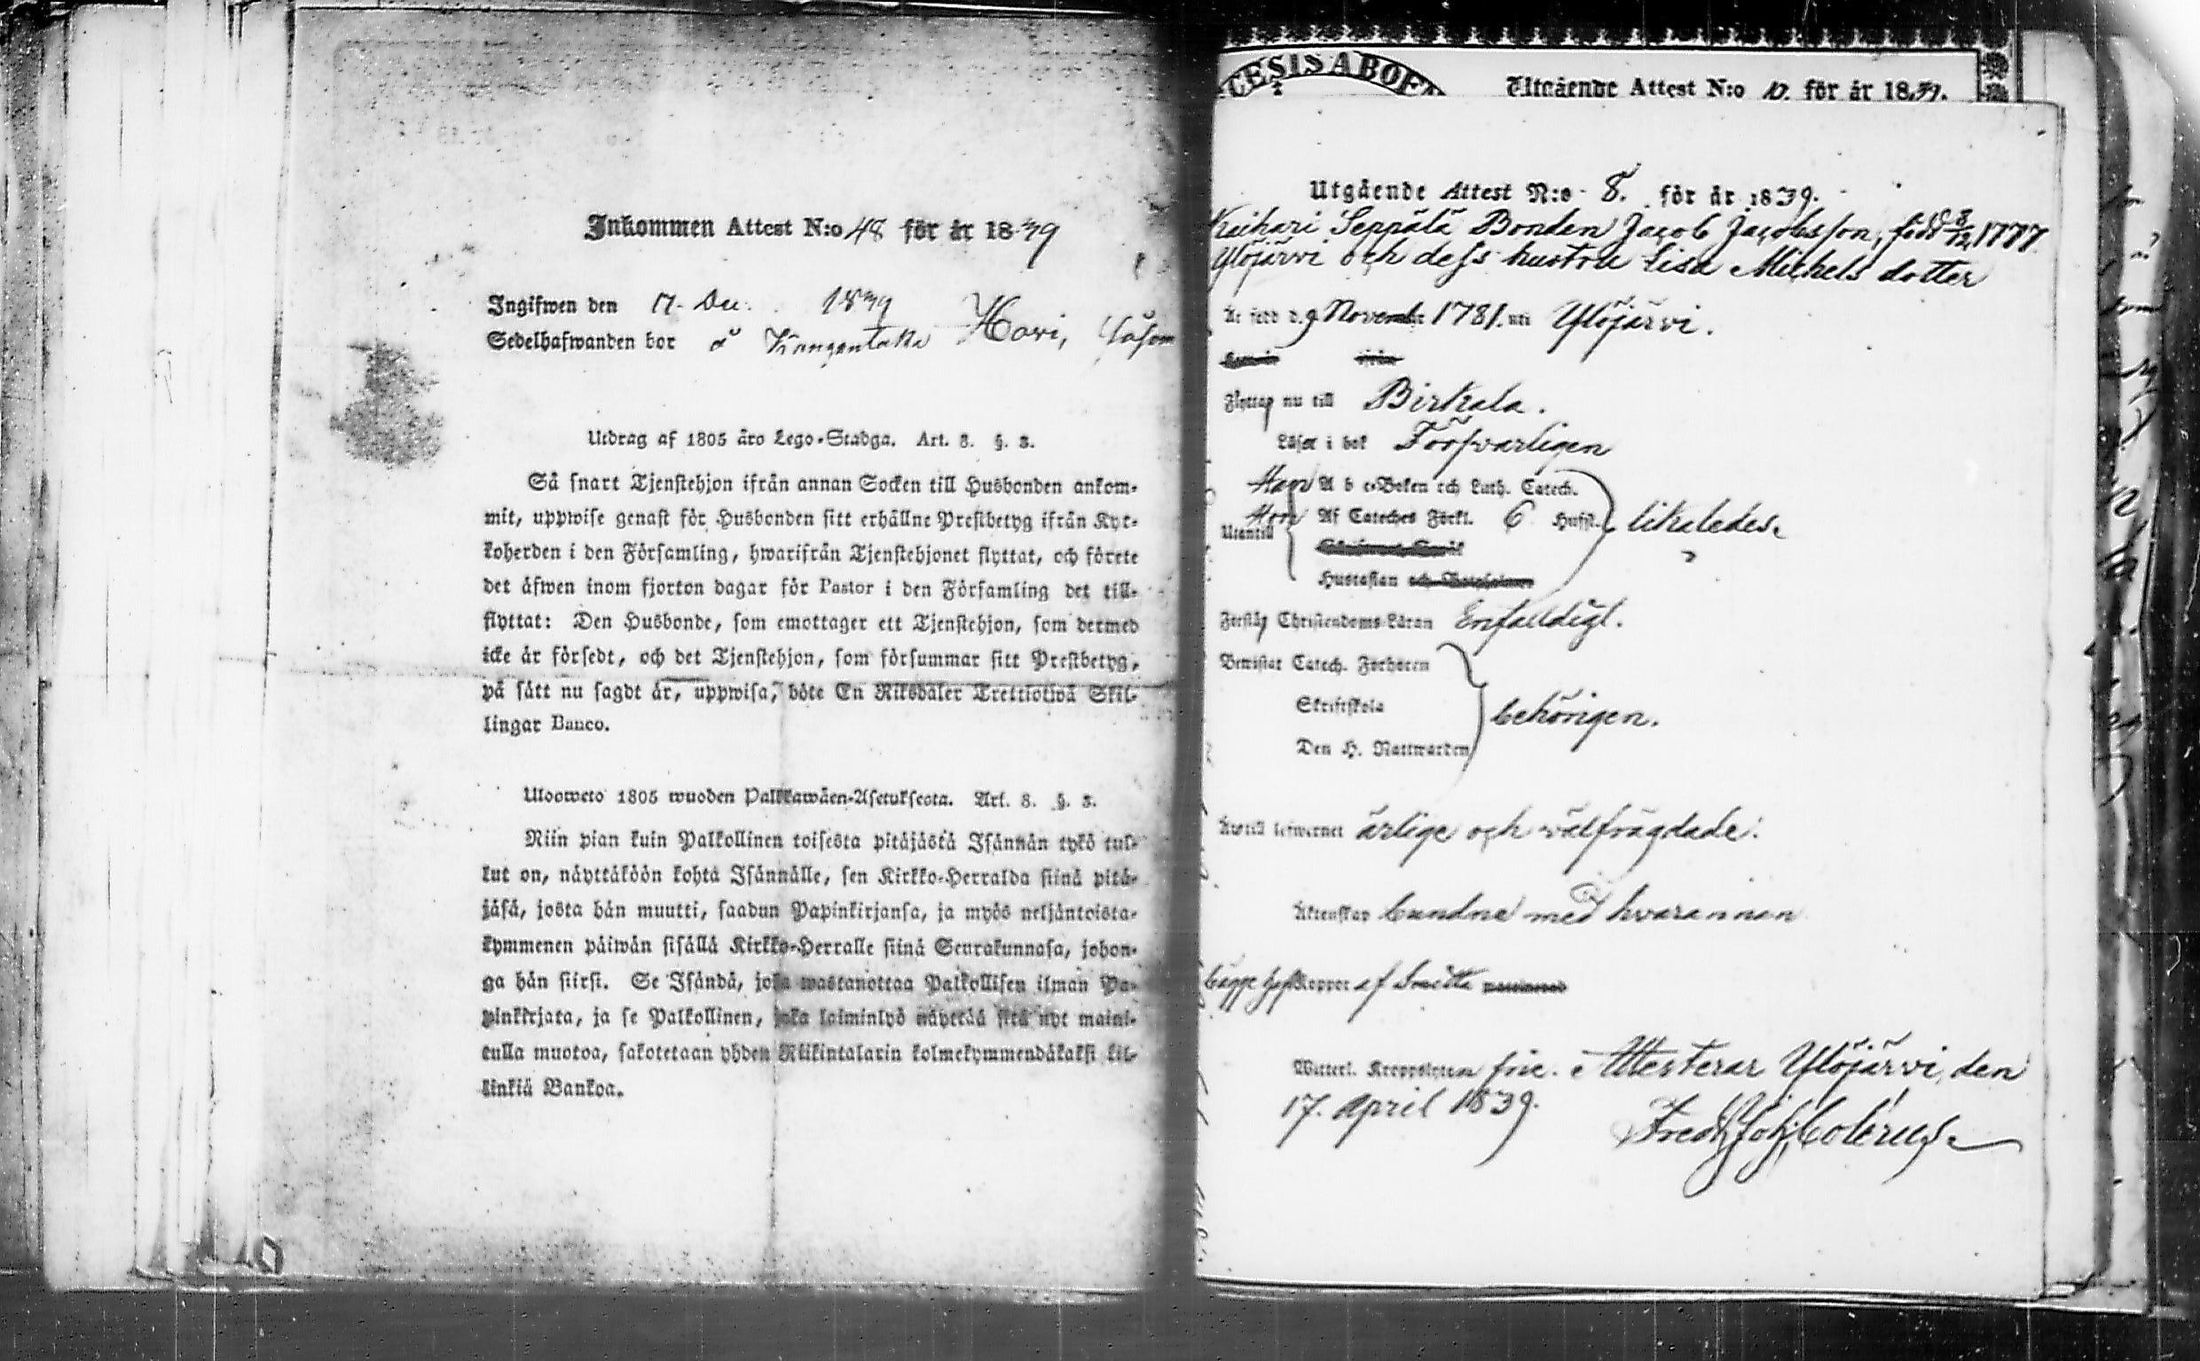 Inkommen Attest N:o 48 för år 1839
Ingifwen den 17. Dec. 1839
Sedelhafwanden bor å Hovi, såsom
Utdrag af 1805 års Lego-Stadga. Art. 8. §. 3.
Så snart Tjenstehjon ifrån annan Socken till Husbonden ankom-
mit, uppwise genast för Husbonden sitt erhållne Prestbetyg ifrån Kyr-
koherden i den Församling, hwarifrån Tjenstehjonet flyttat, och förete
det äfwen inom fjorton dagar för Pastor i den Församling det till-
flyttat: Den Husbonde, som emottager ett Tjenstehjon, som dermed
icke är försedt, och det Tjenstehjon, som försummar sitt Prestbetyg,
på sätt nu sagdt är, uppwisa, böte En Riksdaler Trettiotwå Skil-
lingar Banco.
Uloosweto 1805 wuoden Palkkawäen-Asetuksesta. Art. 8. §. 3.
Niin pian kuin Palkollinen toisesta pitäjästä Isännän tykö tul-
kut on, näyttäköön kohta Isännälle, sen Kirkko-Herralda siinä pitä-
jäsä, josta hän muutti, saadun Papinkirjansa, ja myös neljäntoista-
kymmenen päiwän sisällä Kirkko-Herralle siinä Seurakunnasa, johon-
ga hän siirsi. Se Isändä, joka wastanottaa Palkollisen ilman Pa-
pinkirjata, ja se Palkollinen, joka laiminlyö näyttää sitä nyt maini-
tulla muotoa, sakotetaan yhden Riikintalarin kolmekymmendäkaksi kil-
linkiä Bankoa.
CESIS ABOE
Utgående Attest N:o 10. för år 1839.
Utgående Attest N:o 8. för år 1839.
Keihari Seppälä Bonden Jacob Jacobsson, född d. 8/12 1777
Ylöjärvi och dess hustru Lisa Michels dotter
Är född d. 9 November 1781. uti Ylöjärvi.
Flyttar nu till Birkala.
Läser i bok Försvarligen
Han A b c-Boken och Luth. Catech.
Hon Af Cateches Förkl. 6 Hufst. likaledes.
Utantill
Hustaflan
Förstår Christendoms-Läran Enfalldigt.
Bewistat Catech. Förhören
Skriftskola behörigen.
Den H. Nattwarden
Är till lefwernet ärlige och välfrägdade.
Äktenskap bundne med hvarannan
bägge haft Koppor af Smitta
Witterl. Kroppslyten frie. Attesterar Ylöjärvi, den
17. April 1839.
Fredr. Joh. Colérus.